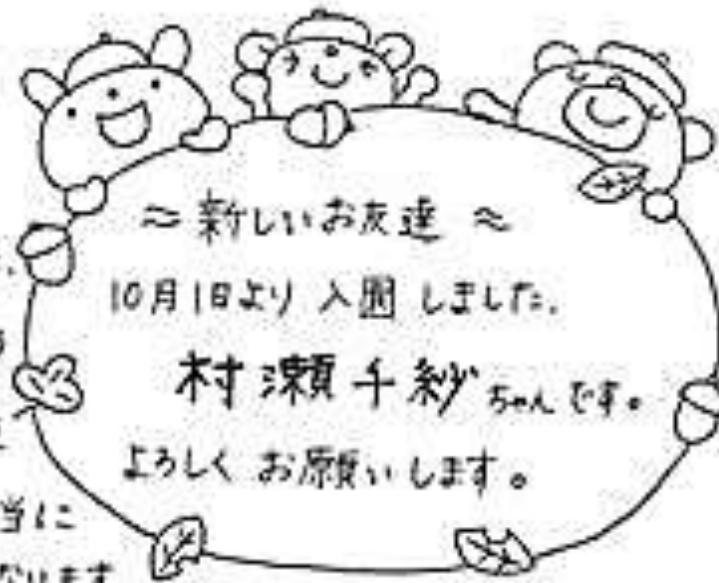 ≈ 新しいお友達 ≈
10月1日より 入園 しました.
村瀬千紗ちゃんです。
よろしく お願いします。
当に
なります